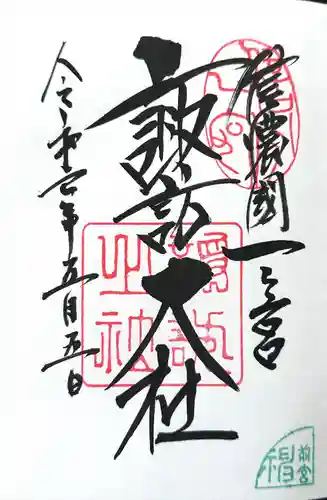 信濃國一之宮
諏訪大社
令和元年五月五日
諏訪
之社
前宮